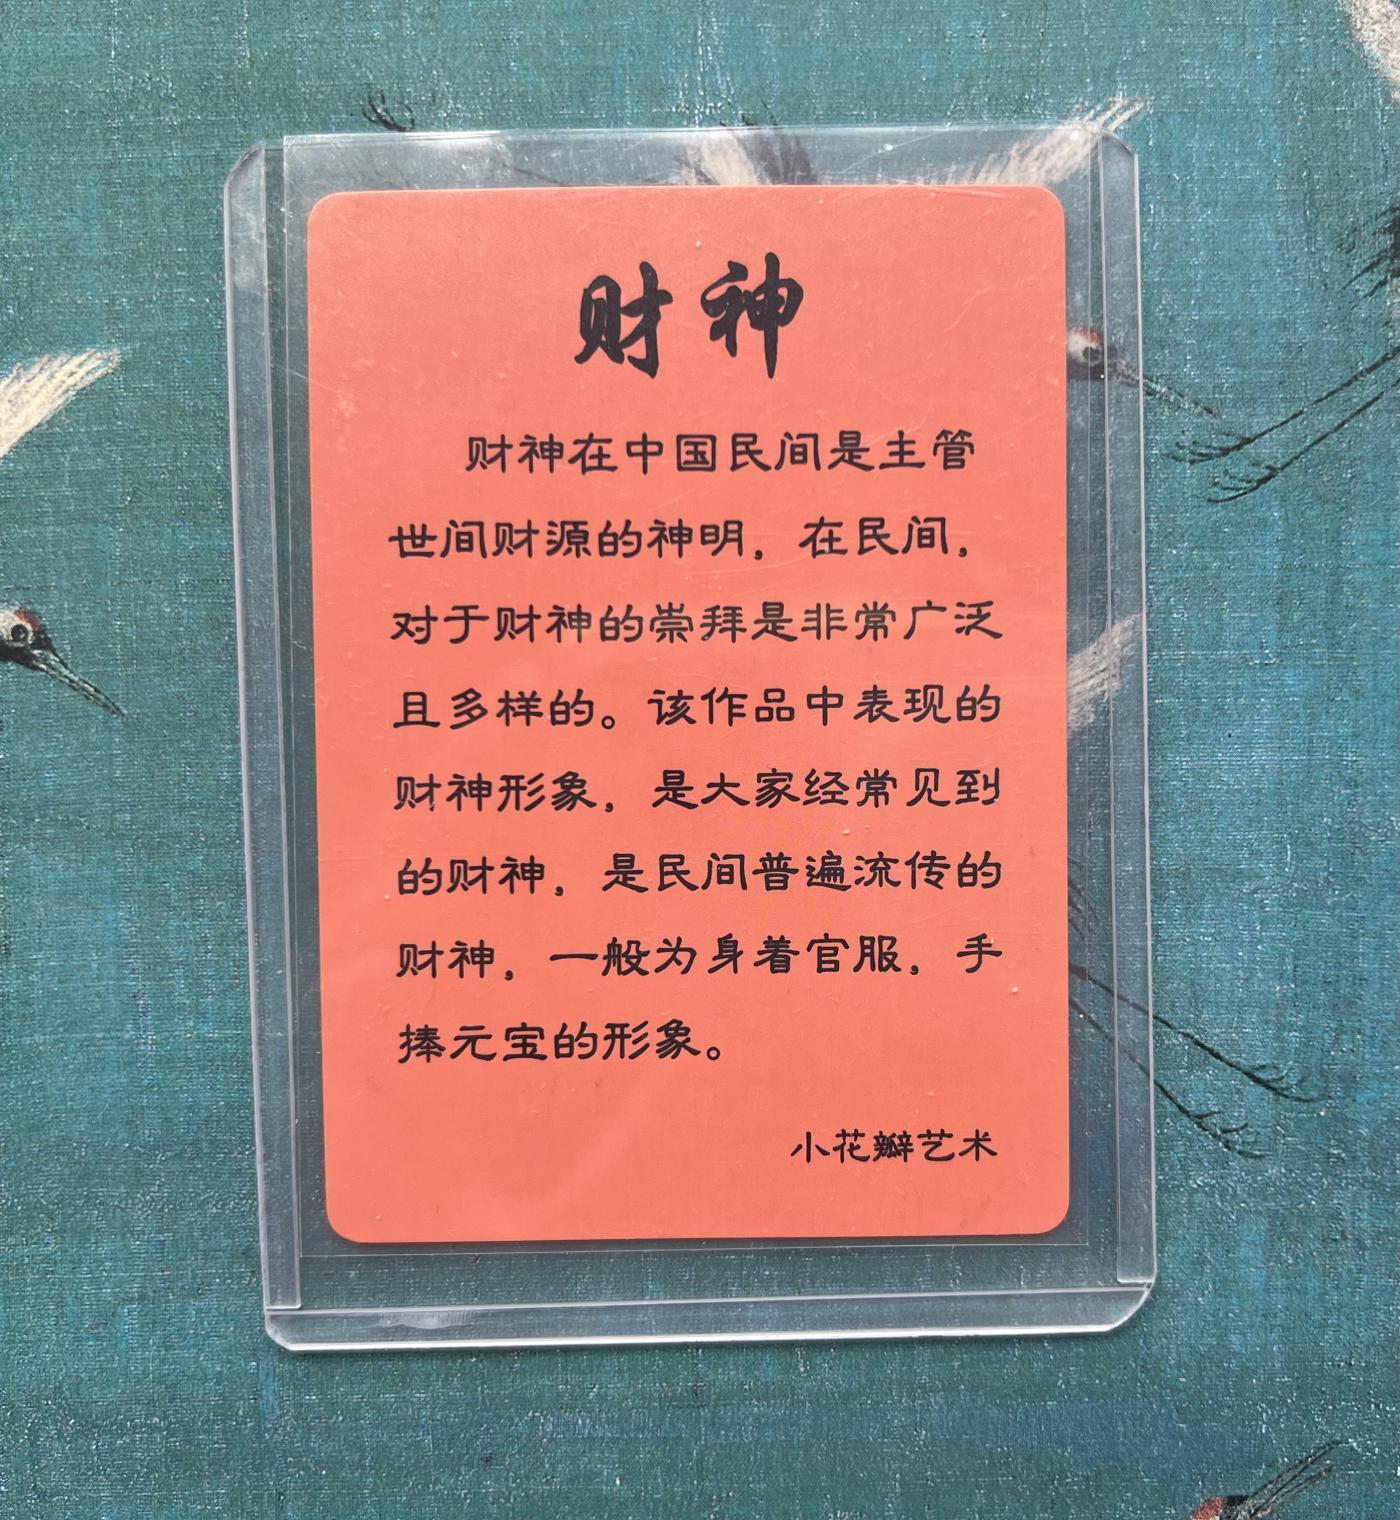 财神
财神在中国民间是主管
世间财源的神明，在民间，
对于财神的崇拜是非常广泛
且多样的。该作品中表现的
财神形象，是大家经常见到
的财神，是民间普遍流传的
财神，一般为身着官服，手
捧元宝的形象。
小花瓣艺术